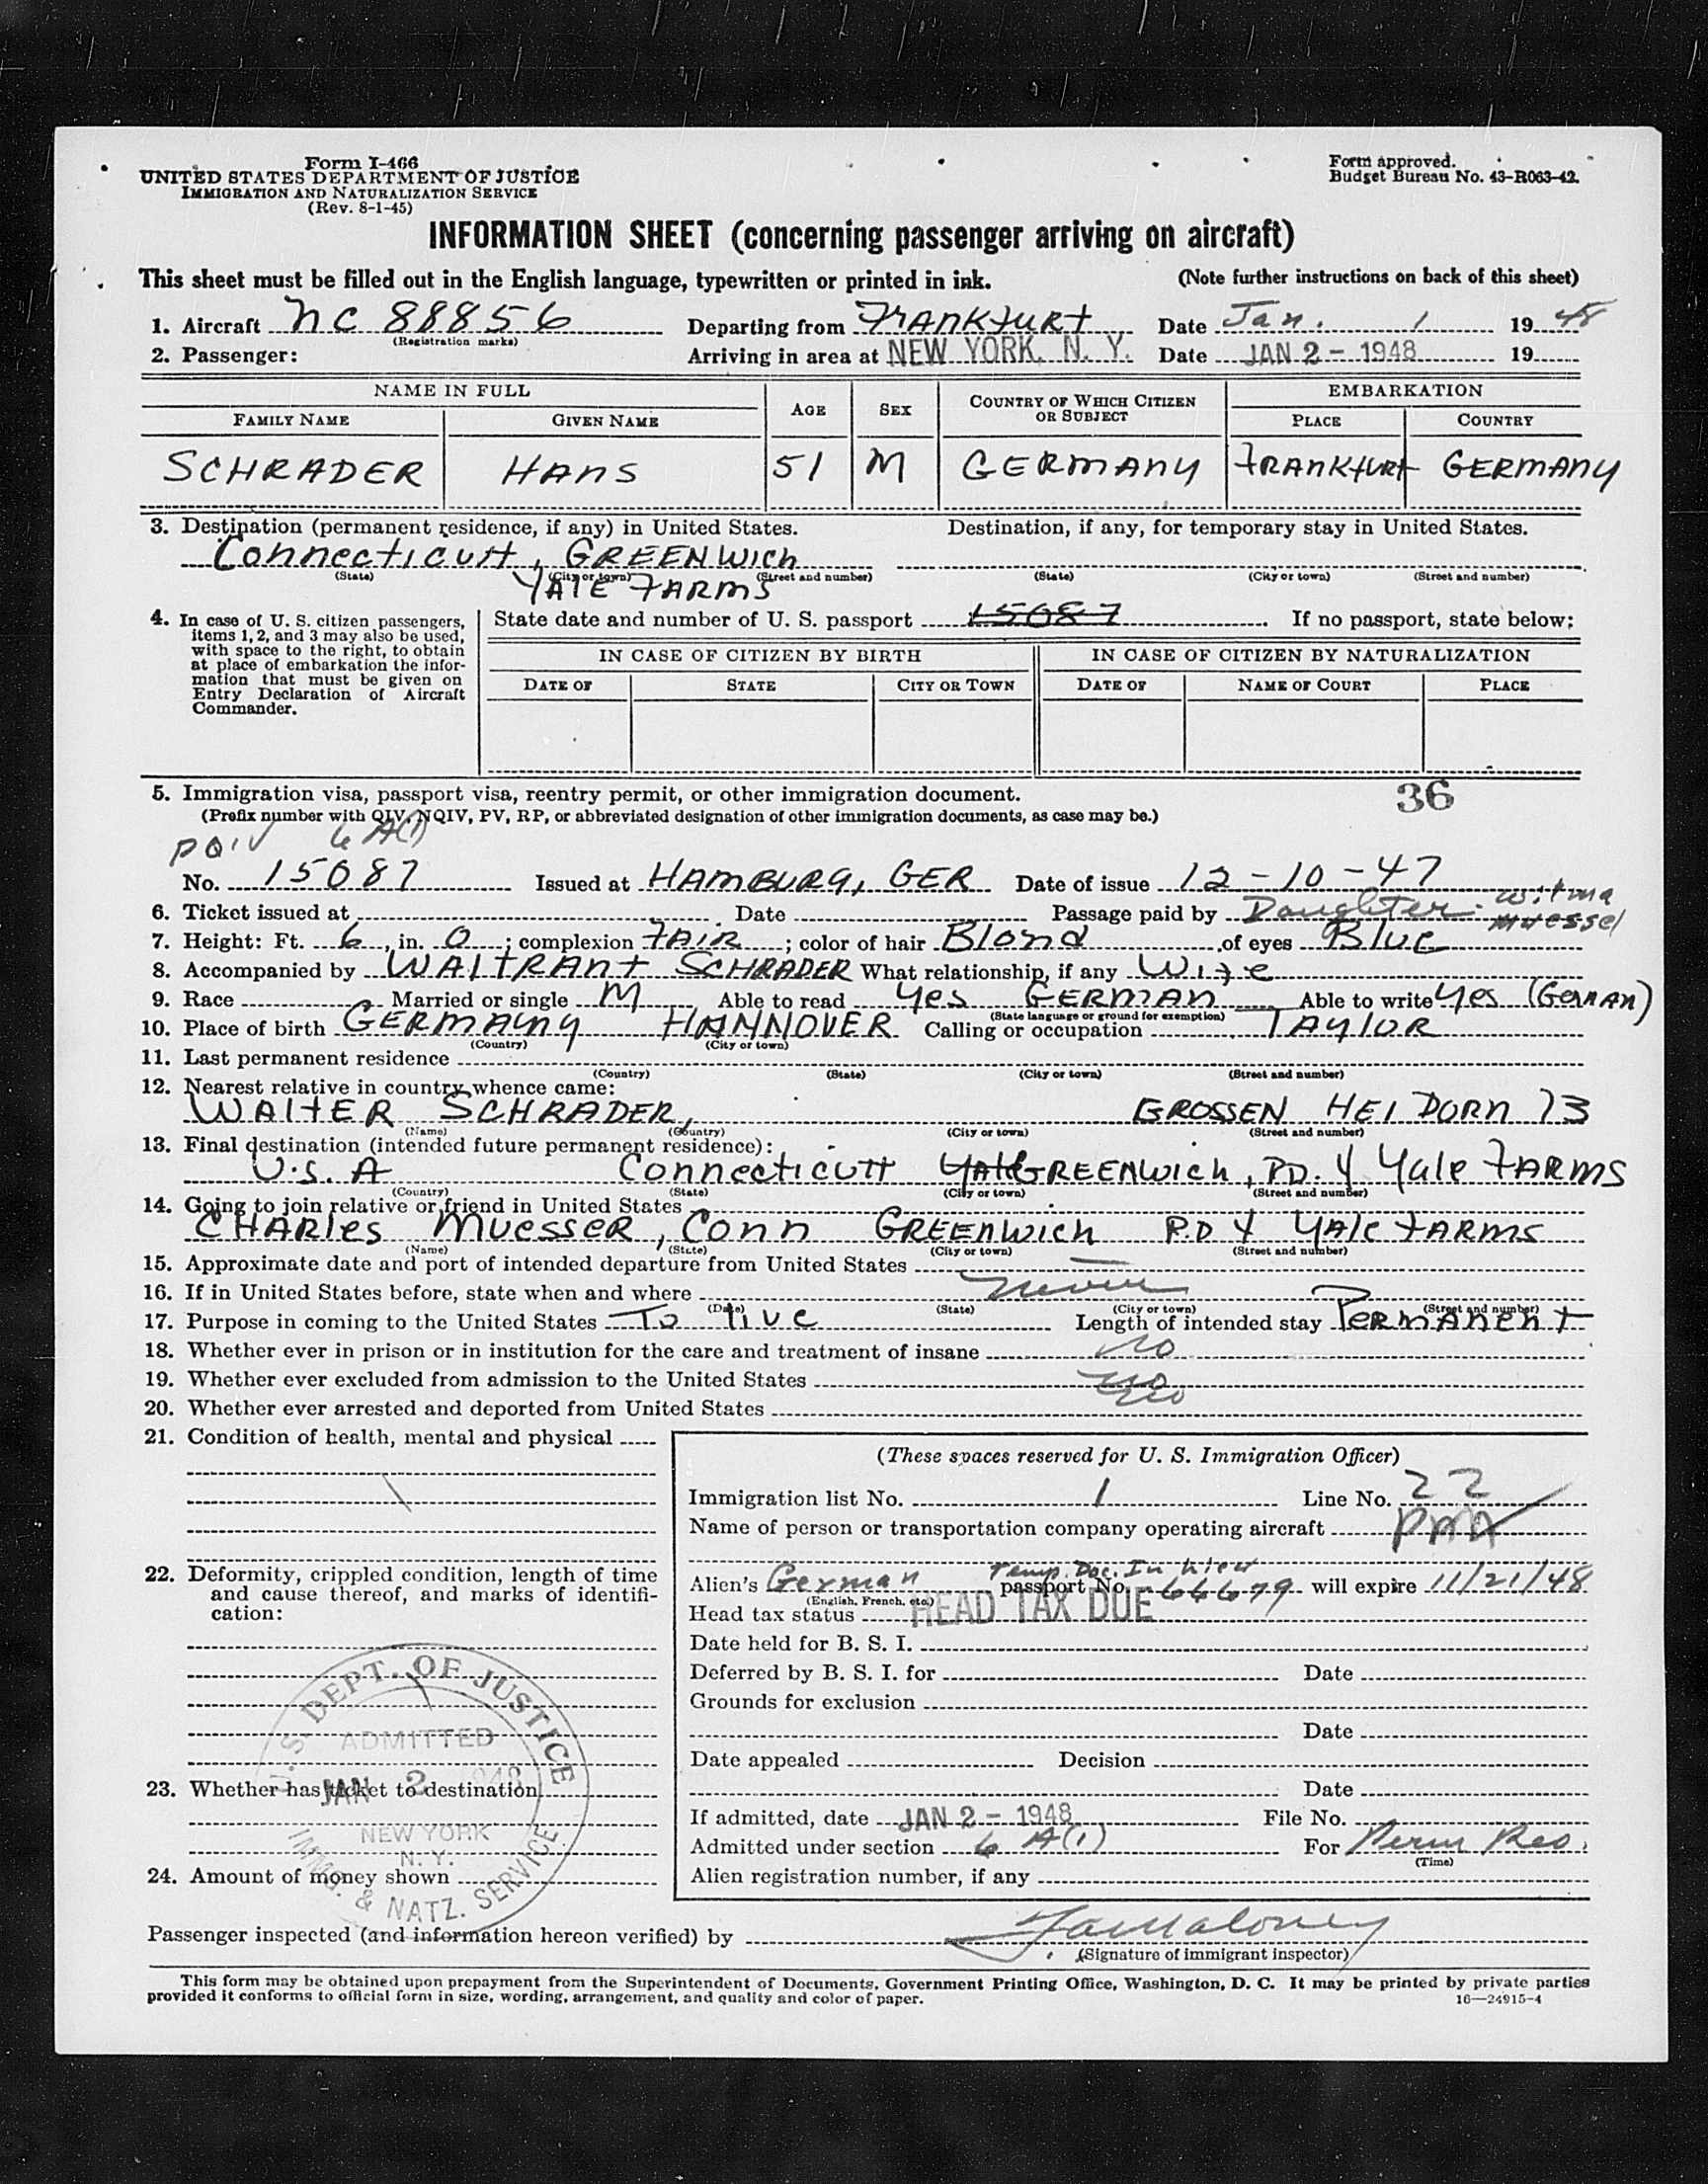 Form I-466
UNITED STATES DEPARTMENT OF JUSTICE
IMMIGRATION AND NATURALIZATION SERVICE
(Rev. 8-1-45)
Form approved.
Budget Bureau No. 43-R063-42.
INFORMATION SHEET (concerning passenger arriving on aircraft)
This sheet must be filled out in the English language, typewritten or printed in ink. (Note further instructions on back of this sheet)
1. Aircraft NC 88856 Departing from FRANKfURt Date Jan. 1 1948
(Registration marks)
2. Passenger: Arriving in area at NEW YORK, N. Y. Date JAN 2 - 1948 19
NAME IN FULL AGE SEX COUNTRY OF WHICH CITIZEN OR SUBJECT EMBARKATION
FAMILY NAME GIVEN NAME PLACE COUNTRY
SCHRADER HANS 51 M GERMANY FRANKfURt GERMANY
3. Destination (permanent residence, if any) in United States. Destination, if any, for temporary stay in United States.
Connecticutt, GREENWich
(State) (City or town) (Street and number) (State) (City or town) (Street and number)
YAlE FARMS
4. In case of U. S. citizen passengers, items 1, 2, and 3 may also be used, with space to the right, to obtain at place of embarkation the information that must be given on Entry Declaration of Aircraft Commander.
State date and number of U. S. passport 15087 If no passport, state below:
IN CASE OF CITIZEN BY BIRTH IN CASE OF CITIZEN BY NATURALIZATION
DATE OF STATE CITY OR TOWN DATE OF NAME OF COURT PLACE
5. Immigration visa, passport visa, reentry permit, or other immigration document. 36
(Prefix number with QIV, NQIV, PV, RP, or abbreviated designation of other immigration documents, as case may be.)
PQIV 6 A(1)
No. 15087 Issued at HAMBURG, GER Date of issue 12-10-47
6. Ticket issued at Date Passage paid by Daughter - Wilma Muessel
7. Height: Ft. 6, in. 0; complexion FAIR; color of hair Blond of eyes Blue
8. Accompanied by WAltRAnt SCHRADER What relationship, if any Wife
9. Race Married or single M Able to read Yes GERMAN Able to write Yes (GERMAN)
(State language or ground for exemption)
10. Place of birth GERMANY HANNOVER Calling or occupation TAYlOR
(Country) (City or town)
11. Last permanent residence
(Country) (State) (City or town) (Street and number)
12. Nearest relative in country whence came:
WAltER SCHRADER, GROSSEN HEIDORN 73
(Name) (Country) (City or town) (Street and number)
13. Final destination (intended future permanent residence):
U.S.A Connecticutt GREENWich, RD. 4 Yale FARMS
(Country) (State) (City or town) (Street and number)
14. Going to join relative or friend in United States
CHARles MUESSER, Conn GREENWich R.D 4 YAle FARMS
(Name) (State) (City or town) (Street and number)
15. Approximate date and port of intended departure from United States
16. If in United States before, state when and where never
(Date) (State) (City or town) (Street and number)
17. Purpose in coming to the United States To live Length of intended stay PERMANEnt
18. Whether ever in prison or in institution for the care and treatment of insane no
19. Whether ever excluded from admission to the United States no
20. Whether ever arrested and deported from United States no
21. Condition of health, mental and physical
(These spaces reserved for U. S. Immigration Officer)
Immigration list No. 1 Line No. 22
Name of person or transportation company operating aircraft PAA
22. Deformity, crippled condition, length of time and cause thereof, and marks of identification:
Temp. Doc. In Lieu
Alien's German passport No. 66679 will expire 11/21/48
(English, French, etc.)
Head tax status HEAD TAX DUE
Date held for B. S. I.
Deferred by B. S. I. for Date
Grounds for exclusion
Date
Date appealed Decision
Date
U. S. DEPT. OF JUSTICE
ADMITTED
JAN 2 1948
NEW YORK
N. Y.
IMMG. & NATZ. SERVICE
23. Whether has ticket to destination
If admitted, date JAN 2 - 1948 File No.
Admitted under section 6 A(1) For Perm Res.
(Time)
24. Amount of money shown
Alien registration number, if any
Passenger inspected (and information hereon verified) by
(Signature of immigrant inspector)
This form may be obtained upon prepayment from the Superintendent of Documents, Government Printing Office, Washington, D. C. It may be printed by private parties
provided it conforms to official form in size, wording, arrangement, and quality and color of paper. 16—24915-4